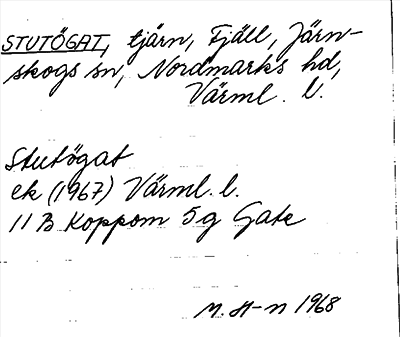 STUTÖGAT, tjärn, Fjäll, Järn-
skogs sn, Nordmarks hd,
Värml. l.
Stutögat
ek (1967) Värml. l.
11 B Koppom 5g Gate
M. H-n 1968